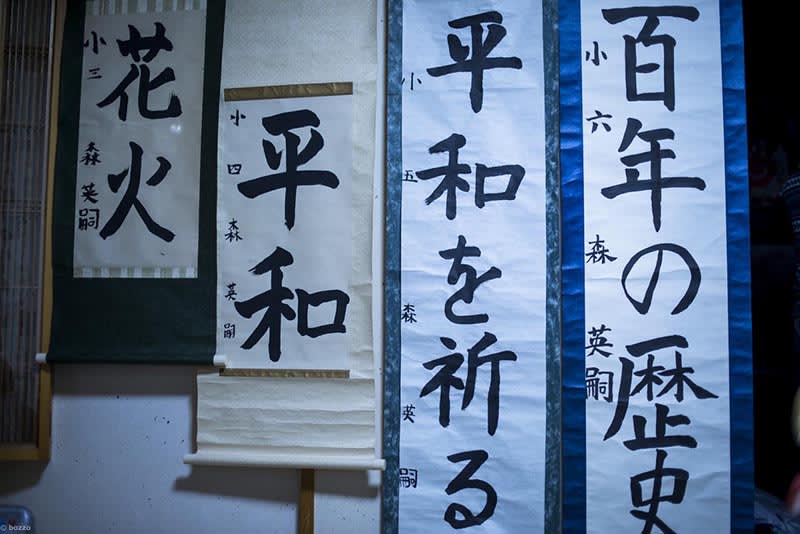 花火
小三 森英嗣
平和
小四 森英嗣
平和を祈る
小五 森英嗣
百年の歴史
小六 森英嗣
© bozzo